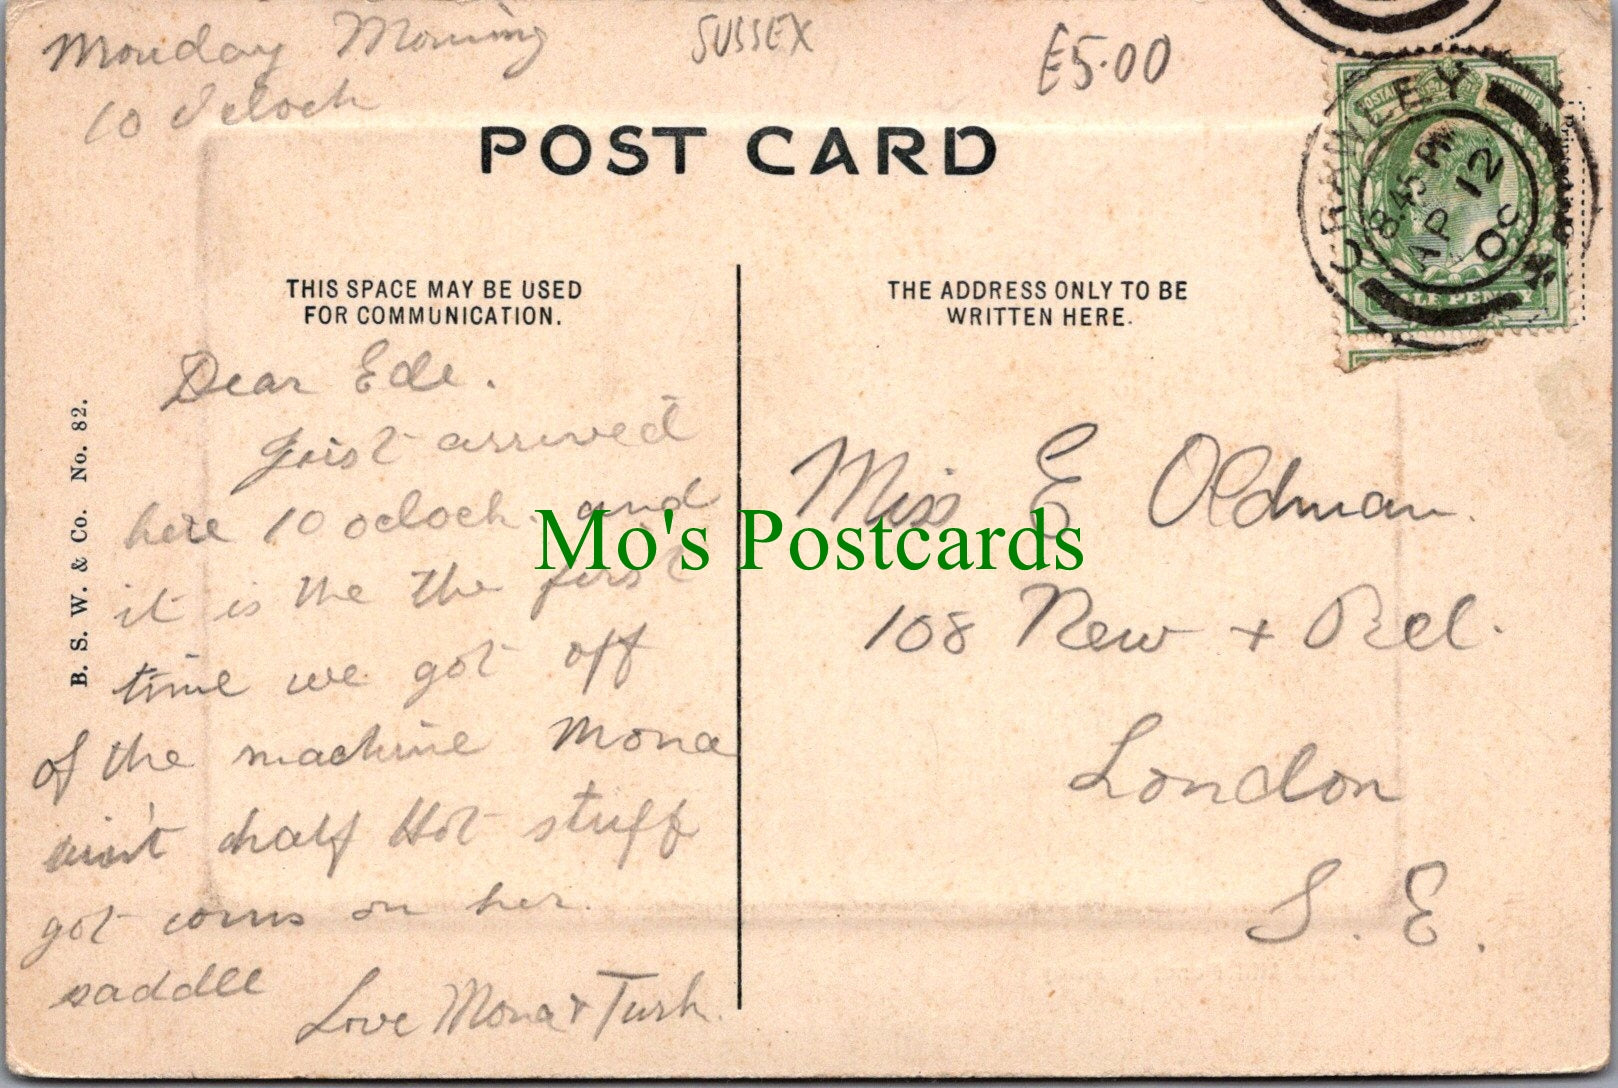 Monday Morning
10 o'clock
SUSSEX
£5.00
POST CARD
THIS SPACE MAY BE USED
FOR COMMUNICATION.
THE ADDRESS ONLY TO BE
WRITTEN HERE.
CRAWLEY
8.45 PM
AP 12
POSTAGE
REVENUE
HALF PENNY
B. S. W. & Co. No. 82.
Dear Ede.
Just arrived
here 10 oclock and
it is the the first
time we got off
of the machine Mona
ain't half Hot stuff
got corns on her
saddle
Love Mona & Turk.
Miss E Oldman.
108 New + Rd.
London
S. E.
Mo's Postcards